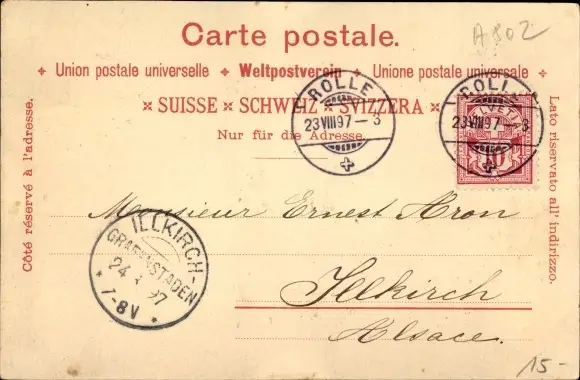 A802
Carte postale.
Union postale universelle Weltpostverein Unione postale universale
SUISSE SCHWEIZ SVIZZERA
Nur für die Adresse.
Côté réservé à l'adresse.
Lato riservato all' indirizzo.
ROLLE
23 VIII 97 - 3
ROLLE
23 VIII 97 - 3
10
Monsieur Ernest Aron
Illkirch
Alsace.
ILLKIRCH-
GRAFENSTADEN
24 97
7-8V
15-